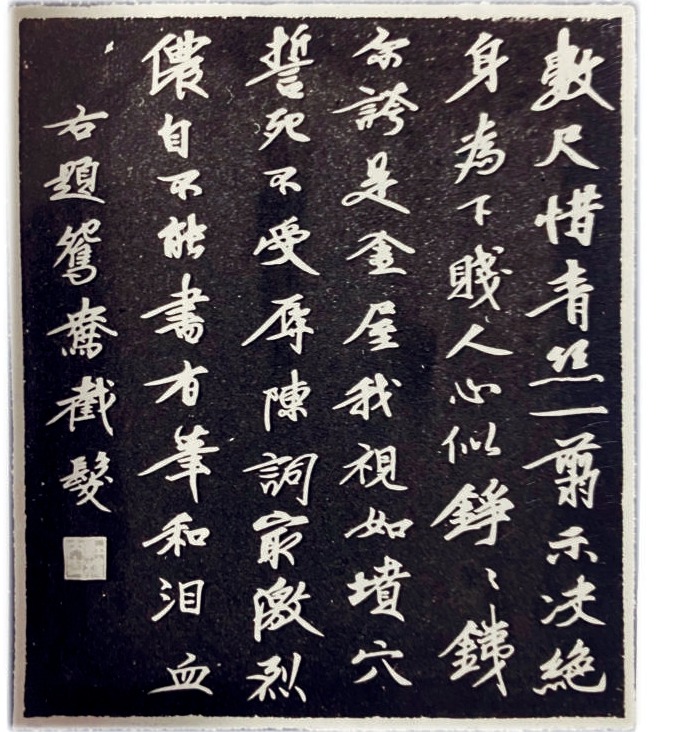 數尺惜青丝一翦示决絶
身為下賤人心似錚〻銕
尔誇是金屋我視如墳穴
誓死不受辱陳詞冣激烈
儂自不能書有筆和泪血
右題鴛鴦截髮